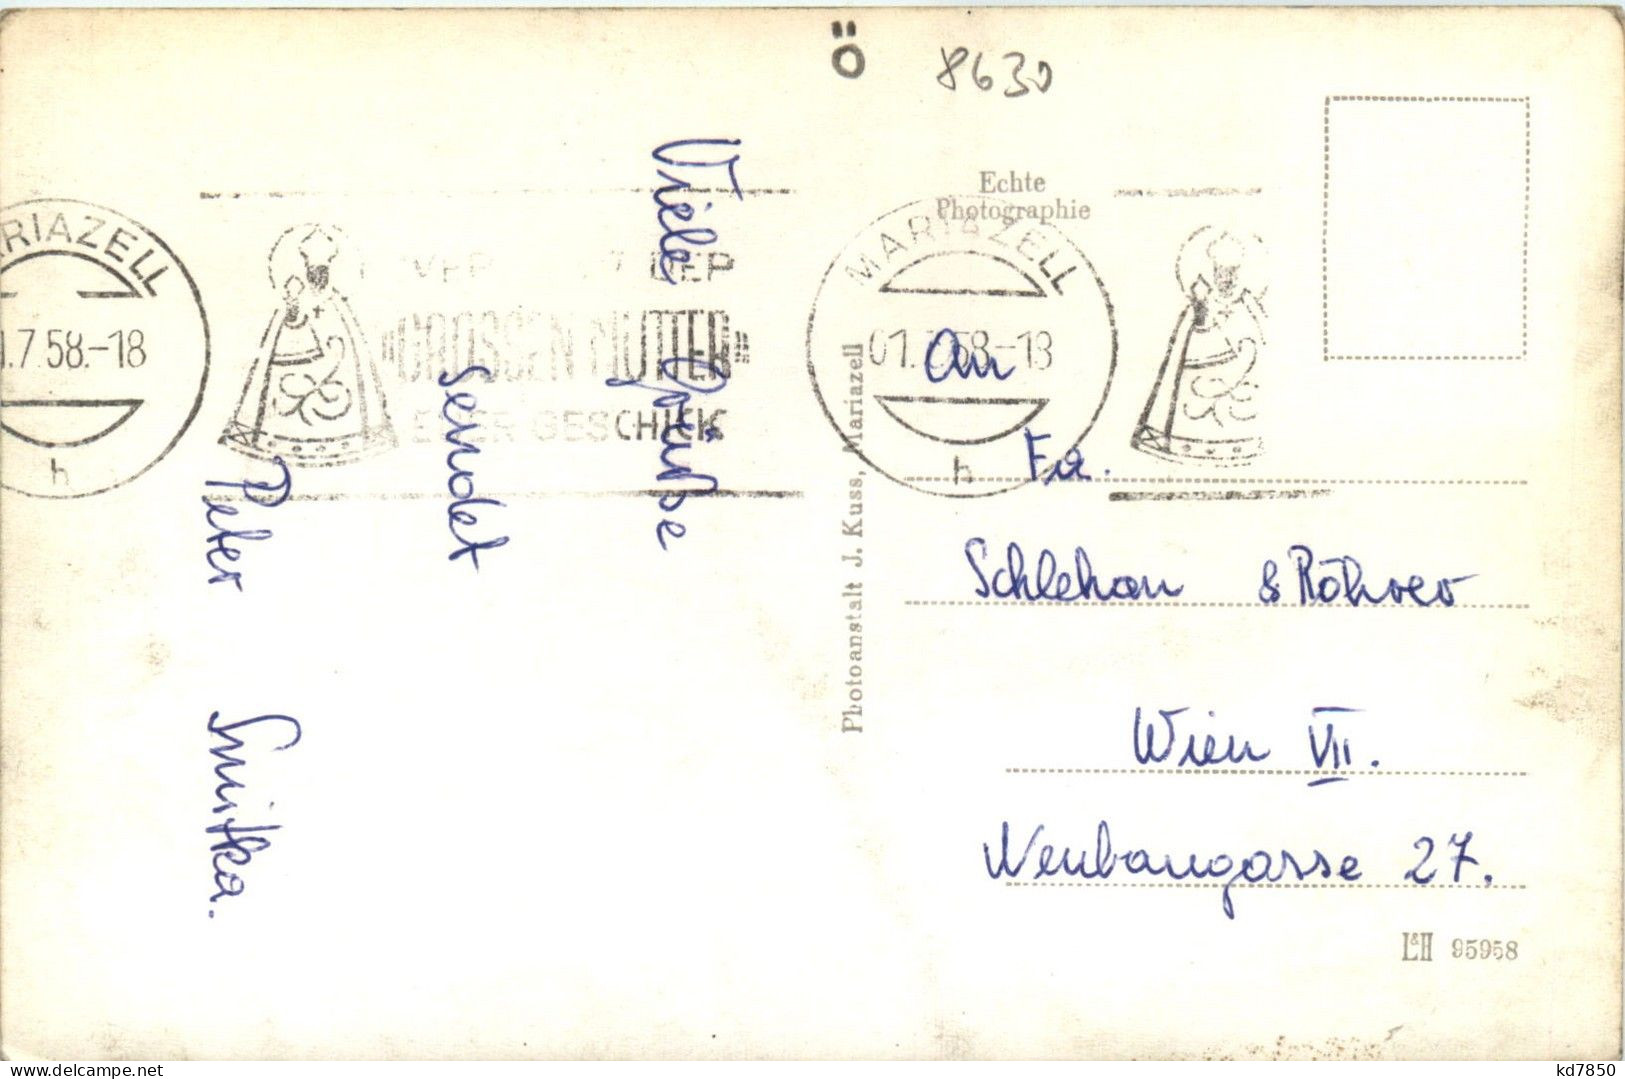 Ö
8630
Echte
Photographie
RIAZELL
1.7.58.-18
h
DER
»GROSSEN MUTTER«
EUER GESCHICK
MARIAZELL
01.7.58-18
h
Viele Grüße
sendet
Peter Smitka.
Photoanstalt J. Kuss, Mariazell
An
Fa.
Schlehan & Röhrer
Wien VII.
Neubaugasse 27.
L&H 95958
kd7850